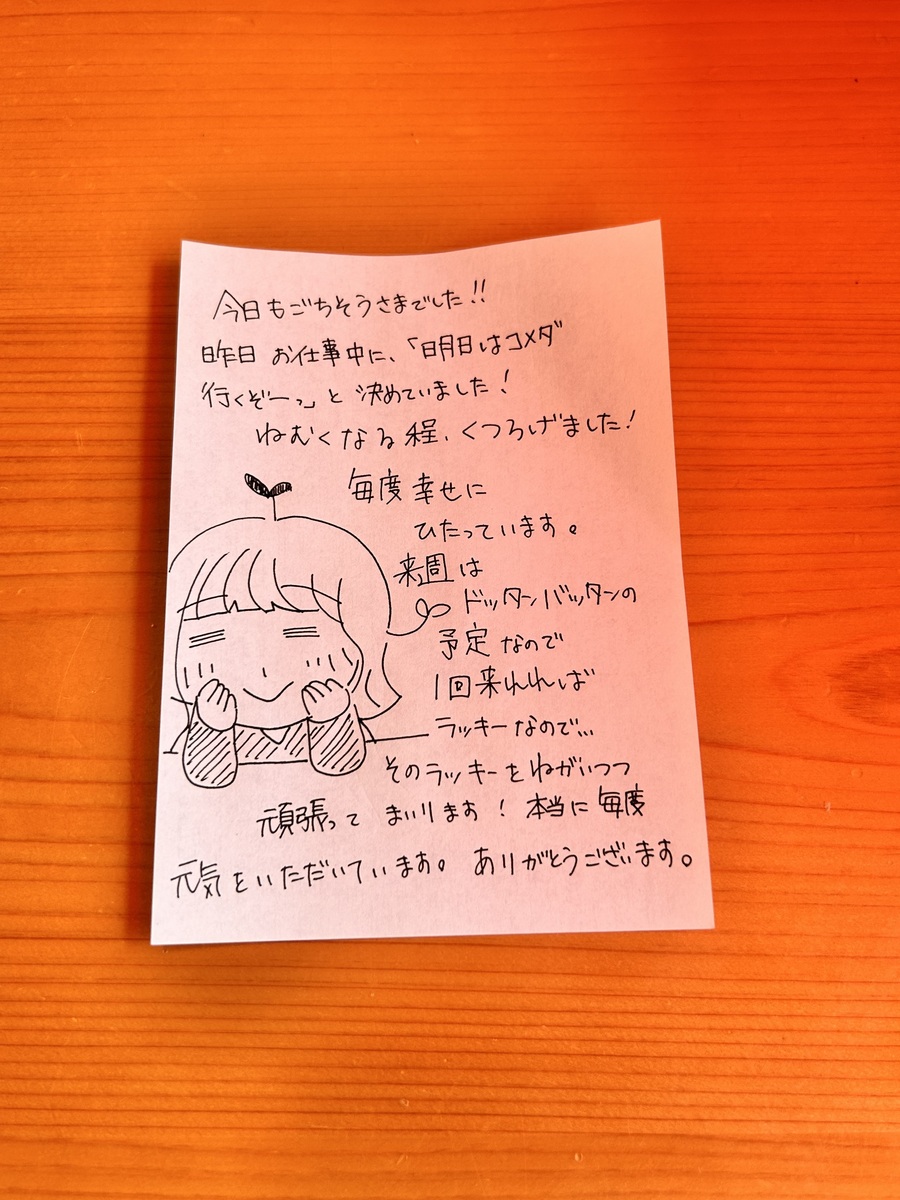 今日もごちそうさまでした!!
昨日 お仕事中に、「明日はコメダ
行くぞーっ」と決めていました!
ねむくなる程、くつろげました!
毎度幸せに
ひたっています。
来週は
ドッタンバッタンの
予定なので
1回来れれば
ラッキーなので…
そのラッキーをねがいつつ
頑張って まいります! 本当に毎度
元気をいただいています。 ありがとうございます。